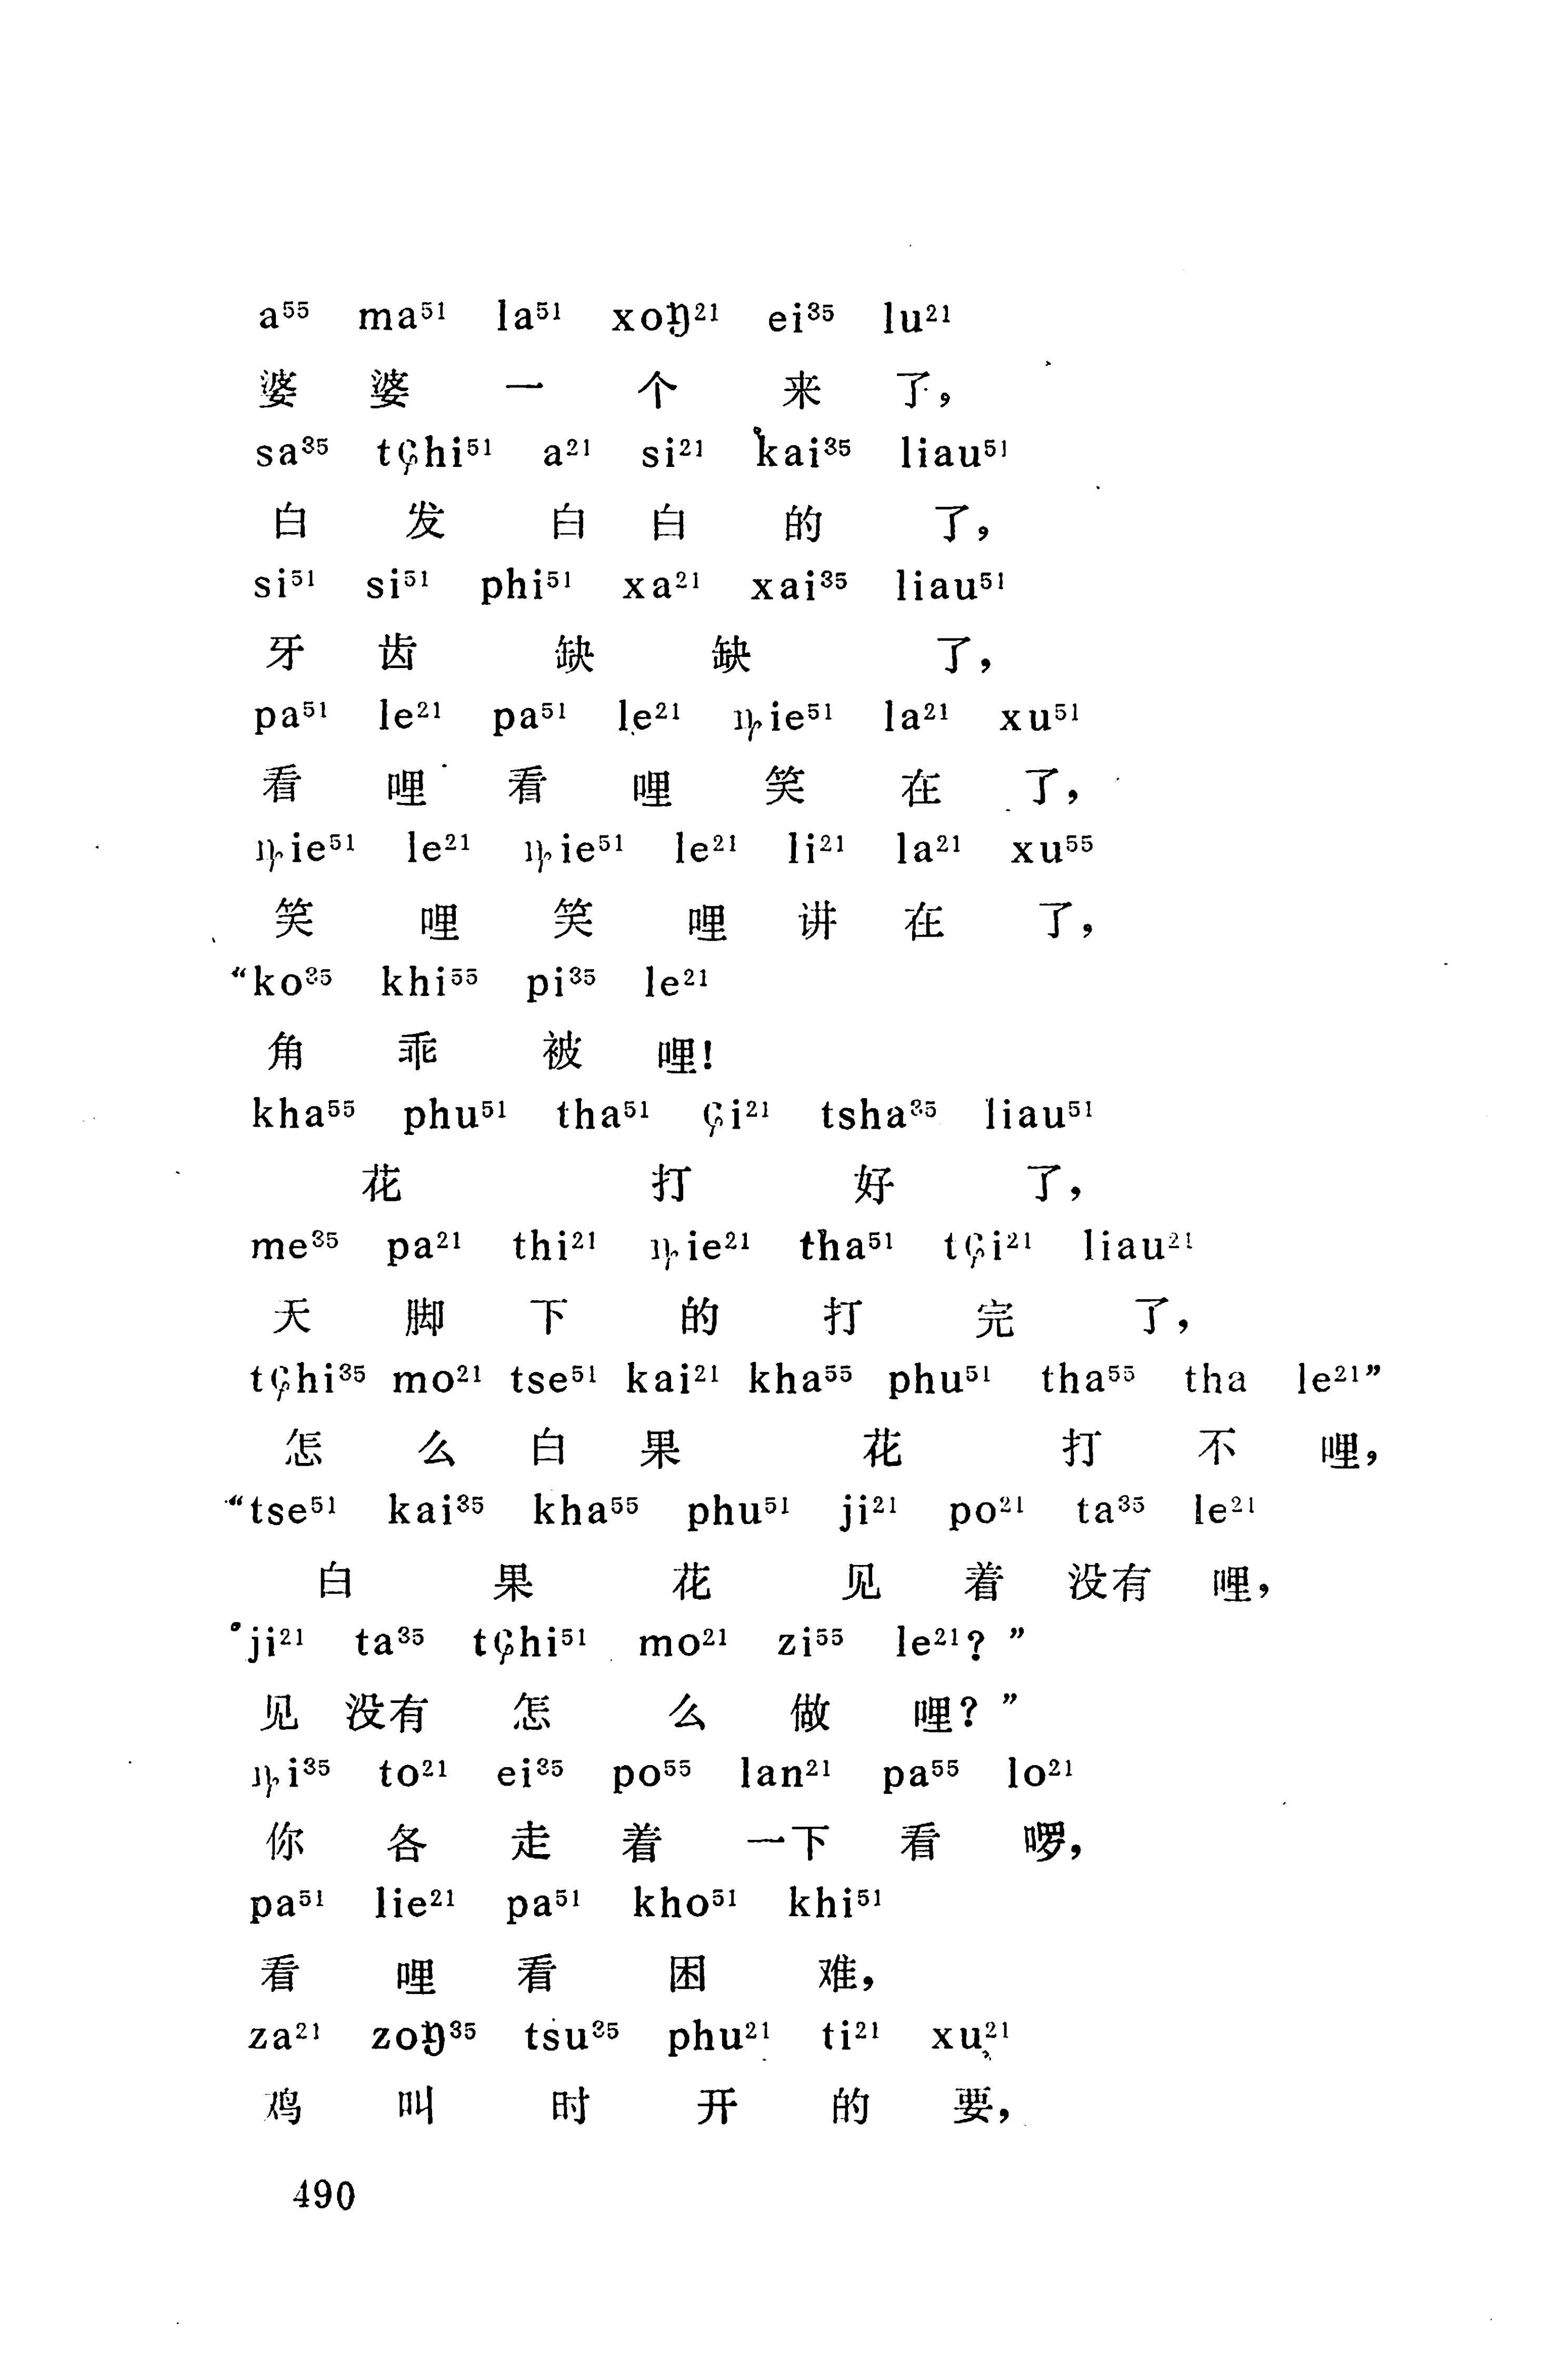 a⁵⁵ ma⁵¹ la⁵¹ xoŋ²¹ ei³⁵ lu²¹
婆 婆 一 个 来 了，
sa³⁵ tɕhi⁵¹ a²¹ si²¹ kai³⁵ liau⁵¹
白 发 白 白 的 了，
si⁵¹ si⁵¹ phi⁵¹ xa²¹ xai³⁵ liau⁵¹
牙 齿 缺 缺 了，
pa⁵¹ le²¹ pa⁵¹ le²¹ ȵie⁵¹ la²¹ xu⁵¹
看 哩 看 哩 笑 在 了，
ȵie⁵¹ le²¹ ȵie⁵¹ le²¹ li²¹ la²¹ xu⁵⁵
笑 哩 笑 哩 讲 在 了，
“ko³⁵ khi⁵⁵ pi³⁵ le²¹
角 乖 被 哩！
kha⁵⁵ phu⁵¹ tha⁵¹ ɕi²¹ tsha³⁵ liau⁵¹
花 打 好 了，
me³⁵ pa²¹ thi²¹ ȵie²¹ tha⁵¹ tɕi²¹ liau²¹
天 脚 下 的 打 完 了，
tɕhi³⁵ mo²¹ tse⁵¹ kai²¹ kha⁵⁵ phu⁵¹ tha⁵⁵ tha le²¹”
怎 么 白 果 花 打 不 哩，
“tse⁵¹ kai³⁵ kha⁵⁵ phu⁵¹ ji²¹ po²¹ ta³⁵ le²¹
白 果 花 见 着 没有 哩，
ji²¹ ta³⁵ tɕhi⁵¹ mo²¹ zi⁵⁵ le²¹？”
见 没有 怎 么 做 哩？”
ȵi³⁵ to²¹ ei³⁵ po⁵⁵ lan²¹ pa⁵⁵ lo²¹
你 各 走 着 一下 看 啰，
pa⁵¹ lie²¹ pa⁵¹ kho⁵¹ khi⁵¹
看 哩 看 困 难，
za²¹ zoŋ³⁵ tsu³⁵ phu²¹ ti²¹ xu²¹
鸡 叫 时 开 的 要，
490